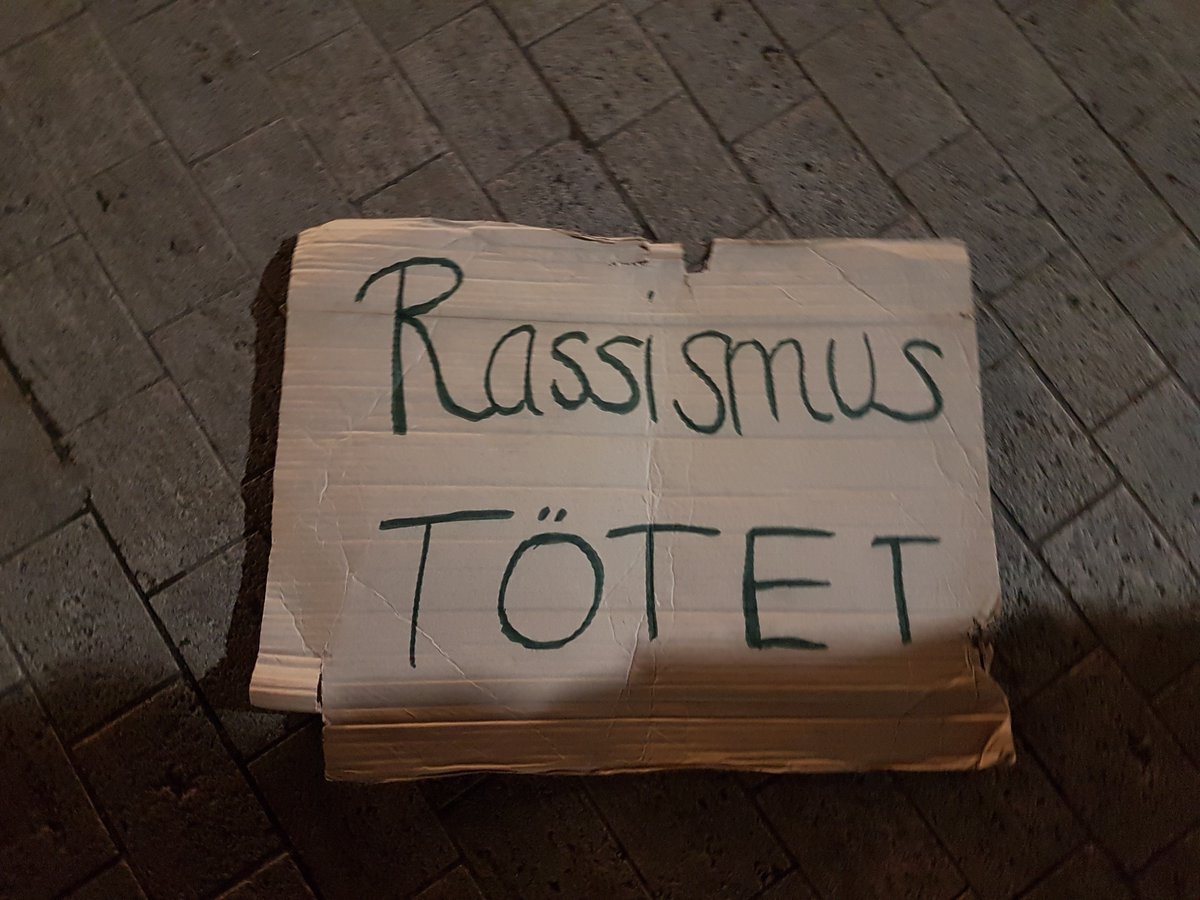 Rassismus
TÖTET